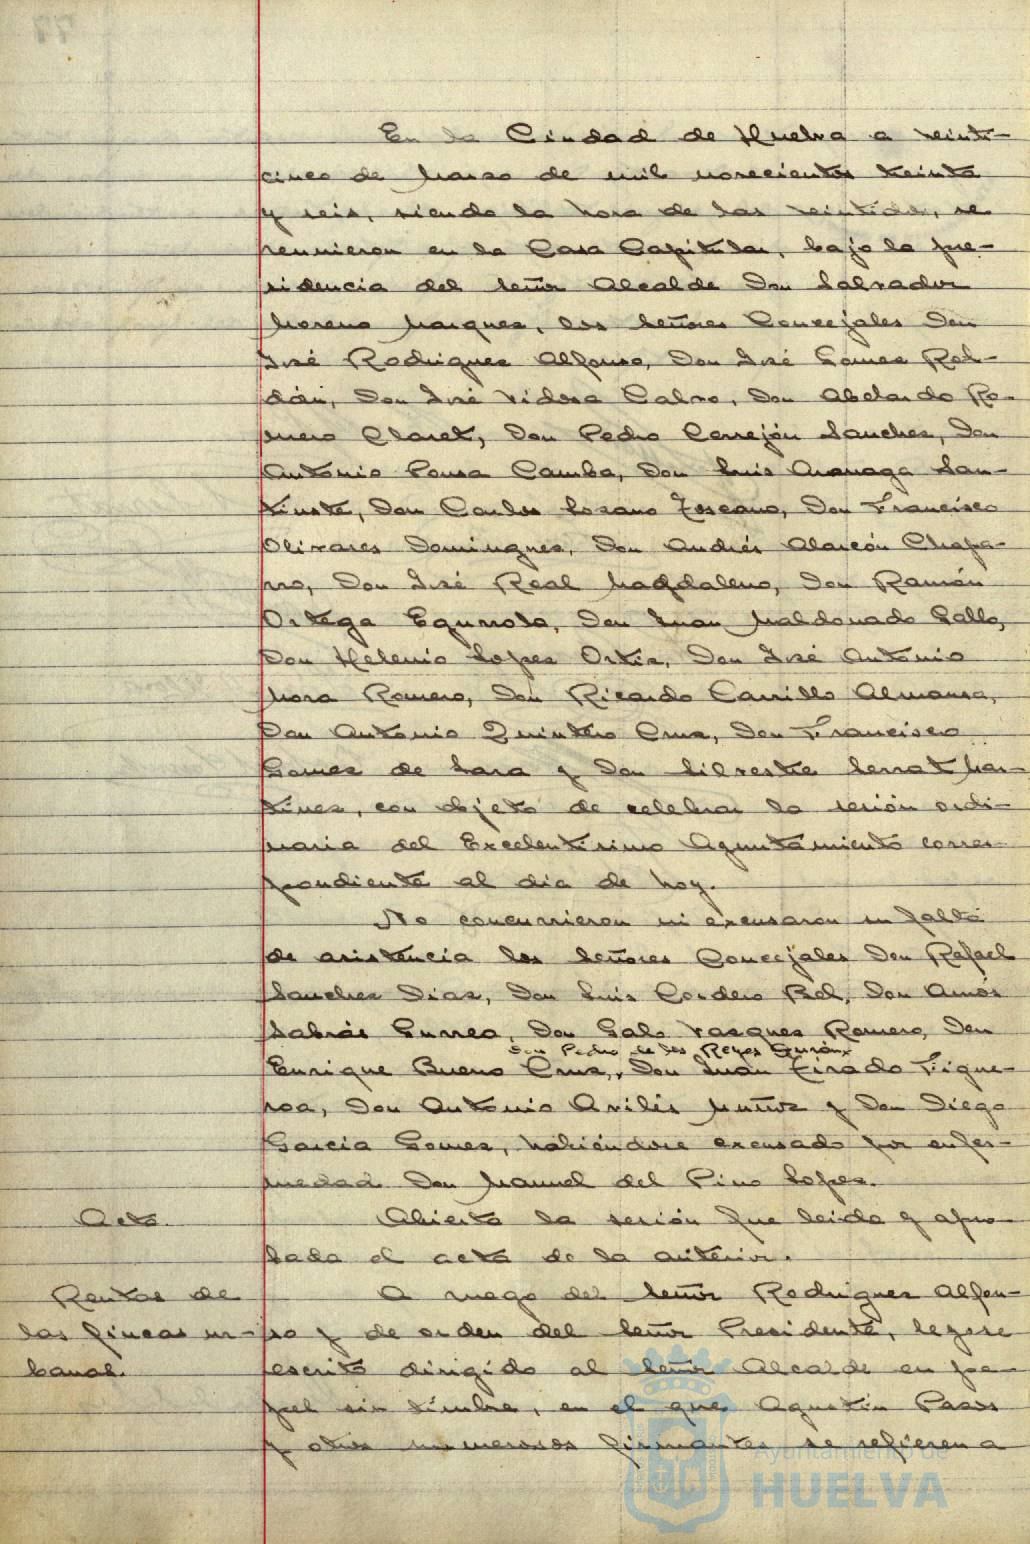 En la Ciudad de Huelva a veinti-
cinco de Marzo de mil novecientos treinta
y seis, siendo la hora de las veintidos, se
reunieron en la Casa Capitular, bajo la pre-
sidencia del Señor Alcalde Don Salvador
Moreno Marquez, los Señores Concejales Don
José Rodriguez Alfonso, Don José Gomez Rol-
dán, Don José Vidosa Calvo, Don Abelardo Ro-
mero Claret, Don Pedro Cerrejón Sanchez, Don
Antonio Pousa Camba, Don Luis Aramaga San-
tiuste, Don Carlos Lozano Toscano, Don Francisco
Olivares Dominguez, Don Andrés Alarcón Chapa-
rro, Don José Real Magdaleno, Don Ramón
Ortega Egurrola, Don Juan Maldonado Gallo,
Don Helenio Lopez Ortiz, Don José Antonio
Mora Romero, Don Ricardo Carrillo Almansa,
Don Antonio Quintero Cruz, Don Francisco
Gomez de Lara y Don Silvestre Serrat Mar-
tinez, con objeto de celebrar la sesión ordi-
naria del Excelentisimo Ayuntamiento corres-
pondiente al dia de hoy.
No concurrieron ni excusaron su falta
de asistencia los Señores Concejales Don Rafael
Sanchez Diaz, Don Luis Cordero Bel, Don Amós
Sabrás Gurrea, Don Galo Vazquez Romero, Don
Don Pedro de los Reyes
Enrique Bueno Cruz, Don Juan Tirado Figue-
roa, Don Antonio Avilés Muñoz y Don Diego
Garcia Gomez, habiéndose excusado por enfer-
medad Don Manuel del Pino Lopez.
Acta. Abierta la sesión fue leida y apro-
bada el acta de la anterior.
Rentas de A ruego del Señor Rodriguez Alfon-
las fincas ur- so y de orden del Señor Presidente, leyose
banas. escrito dirigido al Señor Alcalde en pa-
pel sin timbre, en el que Agustin Pazos
y otros numerosos firmantes se refieren a
Ayuntamiento de
HUELVA